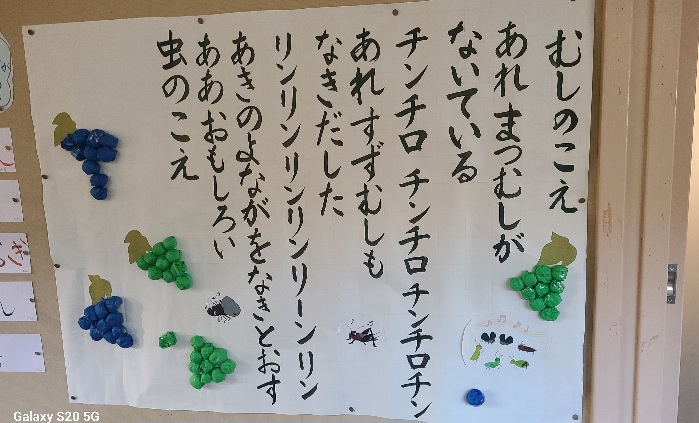 むしのこえ
あれ まつむしが
ないている
チンチロ チンチロ チンチロチン
あれ すずむしも
なきだした
リンリンリンリンリーンリン
あきのよながをなきとおす
ああ おもしろい
虫のこえ
Galaxy S20 5G